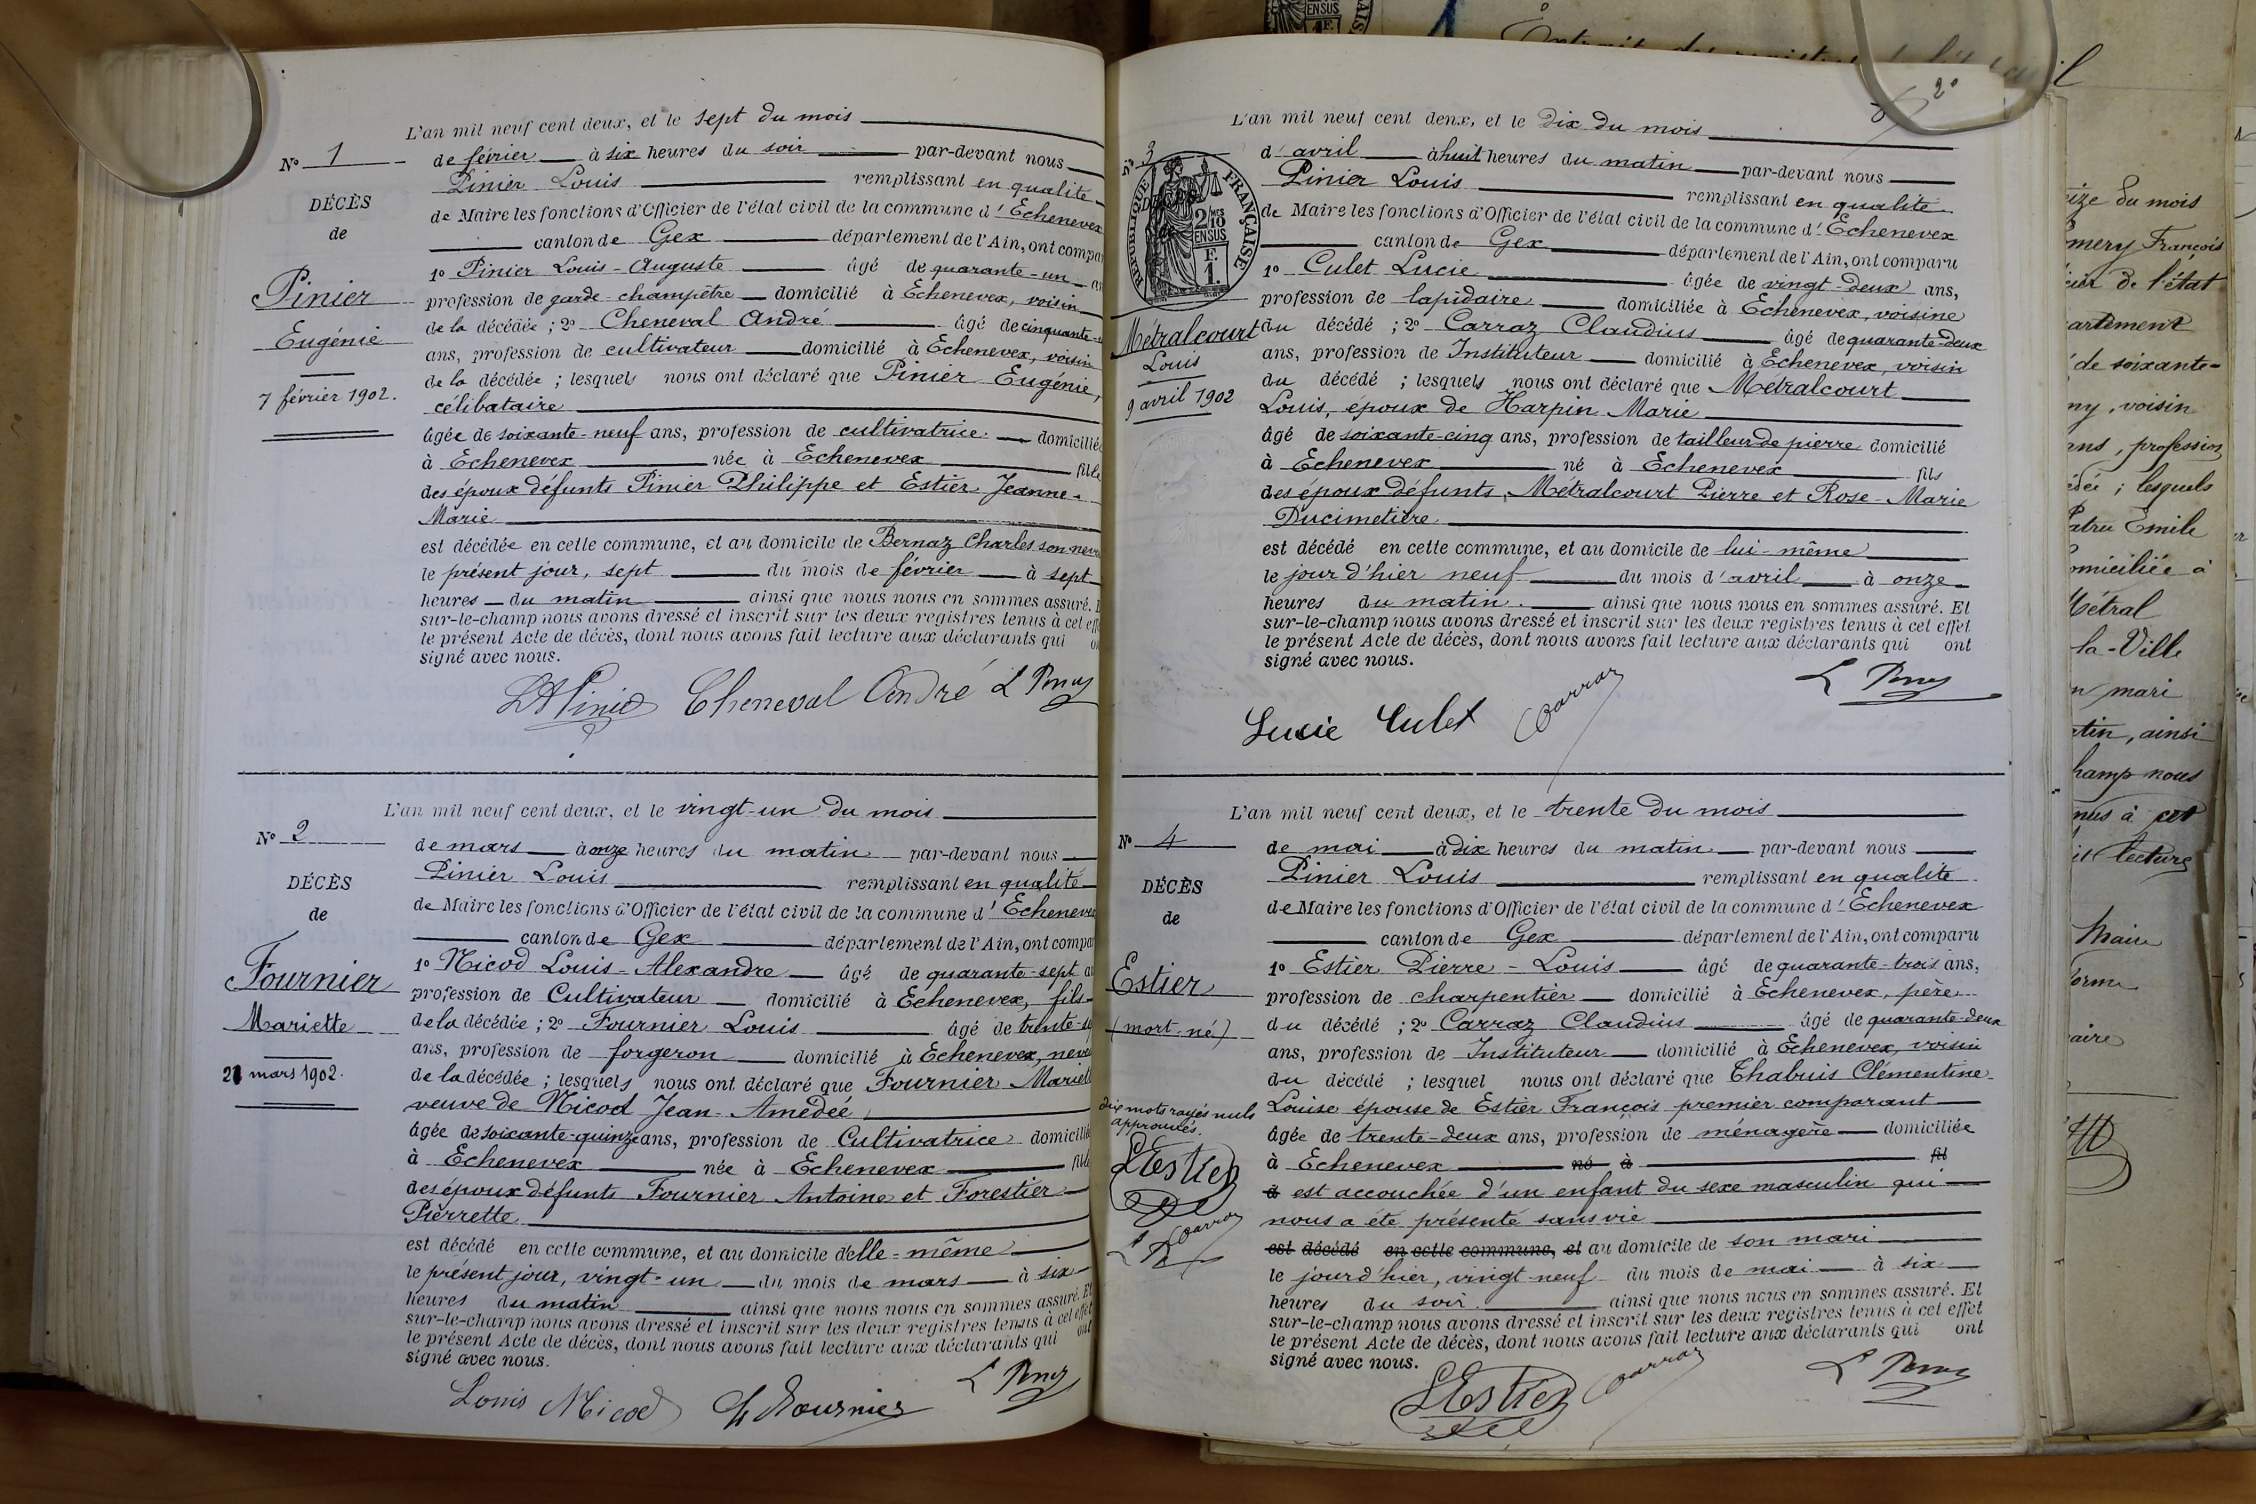 L'an mil neuf cent deux, et le sept du mois
N° 1
de février à six heures du soir par-devant nous
Pinier Louis remplissant en qualité
DÉCÈS
de Maire les fonctions d'Officier de l'état civil de la commune d'Echenevex
de
canton de Gex département de l'Ain, ont compa
1° Pinier Louis-Auguste âgé de quarante-un
Pinier
profession de garde-champêtre domicilié à Echenevex, voisin
de la décédée ; 2° Cheneval André âgé de cinquante
Eugénie
ans, profession de cultivateur domicilié à Echenevex, voisin
de la décédée ; lesquels nous ont déclaré que Pinier Eugénie,
7 février 1902.
célibataire
âgée de soixante-neuf ans, profession de cultivatrice domiciliée
à Echenevex née à Echenevex fille
des époux défunts Pinier Philippe et Estier Jeanne-
Marie
est décédée en cette commune, et au domicile de Bernaz Charles son nev
le présent jour, sept du mois de février à sept
heures du matin ainsi que nous nous en sommes assuré.
sur-le-champ nous avons dressé et inscrit sur les deux registres tenus à cet eff
le présent Acte de décès, dont nous avons fait lecture aux déclarants qui
signé avec nous.
LAPinier Cheneval André
L'an mil neuf cent deux, et le vingt-un du mois
N° 2
de mars à onze heures du matin par-devant nous
Pinier Louis remplissant en qualité
DÉCÈS
de Maire les fonctions d'Officier de l'état civil de la commune d'Echenevex
de
canton de Gex département de l'Ain, ont compar
1° Nicod Louis-Alexandre âgé de quarante-sept
Fournier
profession de Cultivateur domicilié à Echenevex, fils
Mariette
de la décédée ; 2° Fournier Louis âgé de trente-
ans, profession de forgeron domicilié à Echenevex, neveu
21 mars 1902.
de la décédée ; lesquels nous ont déclaré que Fournier Mariette
veuve de Nicod Jean-Amédée,
âgée de soixante-quinze ans, profession de Cultivatrice domiciliée
à Echenevex née à Echenevex fille
des époux défunts Fournier Antoine et Forestier
Pierrette
est décédé en cette commune, et au domicile d'elle-même
le présent jour, vingt-un du mois de mars à six
heures du matin ainsi que nous nous en sommes assuré. Et
sur-le-champ nous avons dressé et inscrit sur les deux registres tenus à cet effet
le présent Acte de décès, dont nous avons fait lecture aux déclarants qui ont
signé avec nous.
Louis Nicod L Fournier
2°
L'an mil neuf cent deux, et le dix du mois
N° 3
d'avril à huit heures du matin par-devant nous
Pinier Louis remplissant en qualité
DÉCÈS
RÉPUBLIQUE FRANÇAISE
2/10 MES
EN SUS
1 F.
de Maire les fonctions d'Officier de l'état civil de la commune d'Echenevex
canton de Gex département de l'Ain, ont comparu
1° Culet Lucie âgée de vingt-deux ans,
profession de lapidaire domiciliée à Echenevex, voisine
Métralcourt
du décédé ; 2° Carraz Claudius âgé de quarante-deux
Louis
ans, profession de Instituteur domicilié à Echenevex, voisin
9 avril 1902
du décédé ; lesquels nous ont déclaré que Métralcourt
Louis, époux de Harpin Marie
âgé de soixante-cinq ans, profession de tailleur de pierre domicilié
à Echenevex né à Echenevex fils
des époux défunts, Métralcourt Pierre et Rose-Marie
Ducimetière
est décédé en cette commune, et au domicile de lui-même
le jour d'hier neuf du mois d'avril à onze
heures du matin. ainsi que nous nous en sommes assuré. Et
sur-le-champ nous avons dressé et inscrit sur les deux registres tenus à cet effet
le présent Acte de décès, dont nous avons fait lecture aux déclarants qui ont
signé avec nous.
Lucie Culet Carraz
L'an mil neuf cent deux, et le trente du mois
N° 4
de mai à dix heures du matin par-devant nous
Pinier Louis remplissant en qualité
DÉCÈS
de Maire les fonctions d'Officier de l'état civil de la commune d'Echenevex
de
canton de Gex département de l'Ain, ont comparu
1° Estier Pierre-Louis âgé de quarante-trois ans,
Estier
profession de charpentier domicilié à Echenevex, père
(mort-né)
du décédé ; 2° Carraz Claudius âgé de quarante-deux
ans, profession de Instituteur domicilié à Echenevex, voisin
du décédé ; lesquel nous ont déclaré que Chabuis Clémentine
dix mots rayés nuls
approuvés.
Louise épouse de Estier François premier comparant
âgée de trente-deux ans, profession de ménagère domiciliée
LEstier
à Echenevex né à fil
d est accouchée d'un enfant du sexe masculin qui
nous a été présenté sans vie
Carraz
est décédé en cette commune, et au domicile de son mari
le jour d'hier, vingt-neuf du mois de mai à six
heures du soir. ainsi que nous nous en sommes assuré. Et
sur-le-champ nous avons dressé et inscrit sur les deux registres tenus à cet effet
le présent Acte de décès, dont nous avons fait lecture aux déclarants qui ont
signé avec nous.
LEstier Carraz
EN SUS
Extrait des registres de l'état
eize du mois
mery François
cier de l'état
artement
de soixante-
ny, voisin
ans, profession
; lesquels
Patru Emile
omiciliée à
Métral
la-Ville
n mari
tin, ainsi
hamp nous
nus à cet
it lecture
Maire
forme
aire